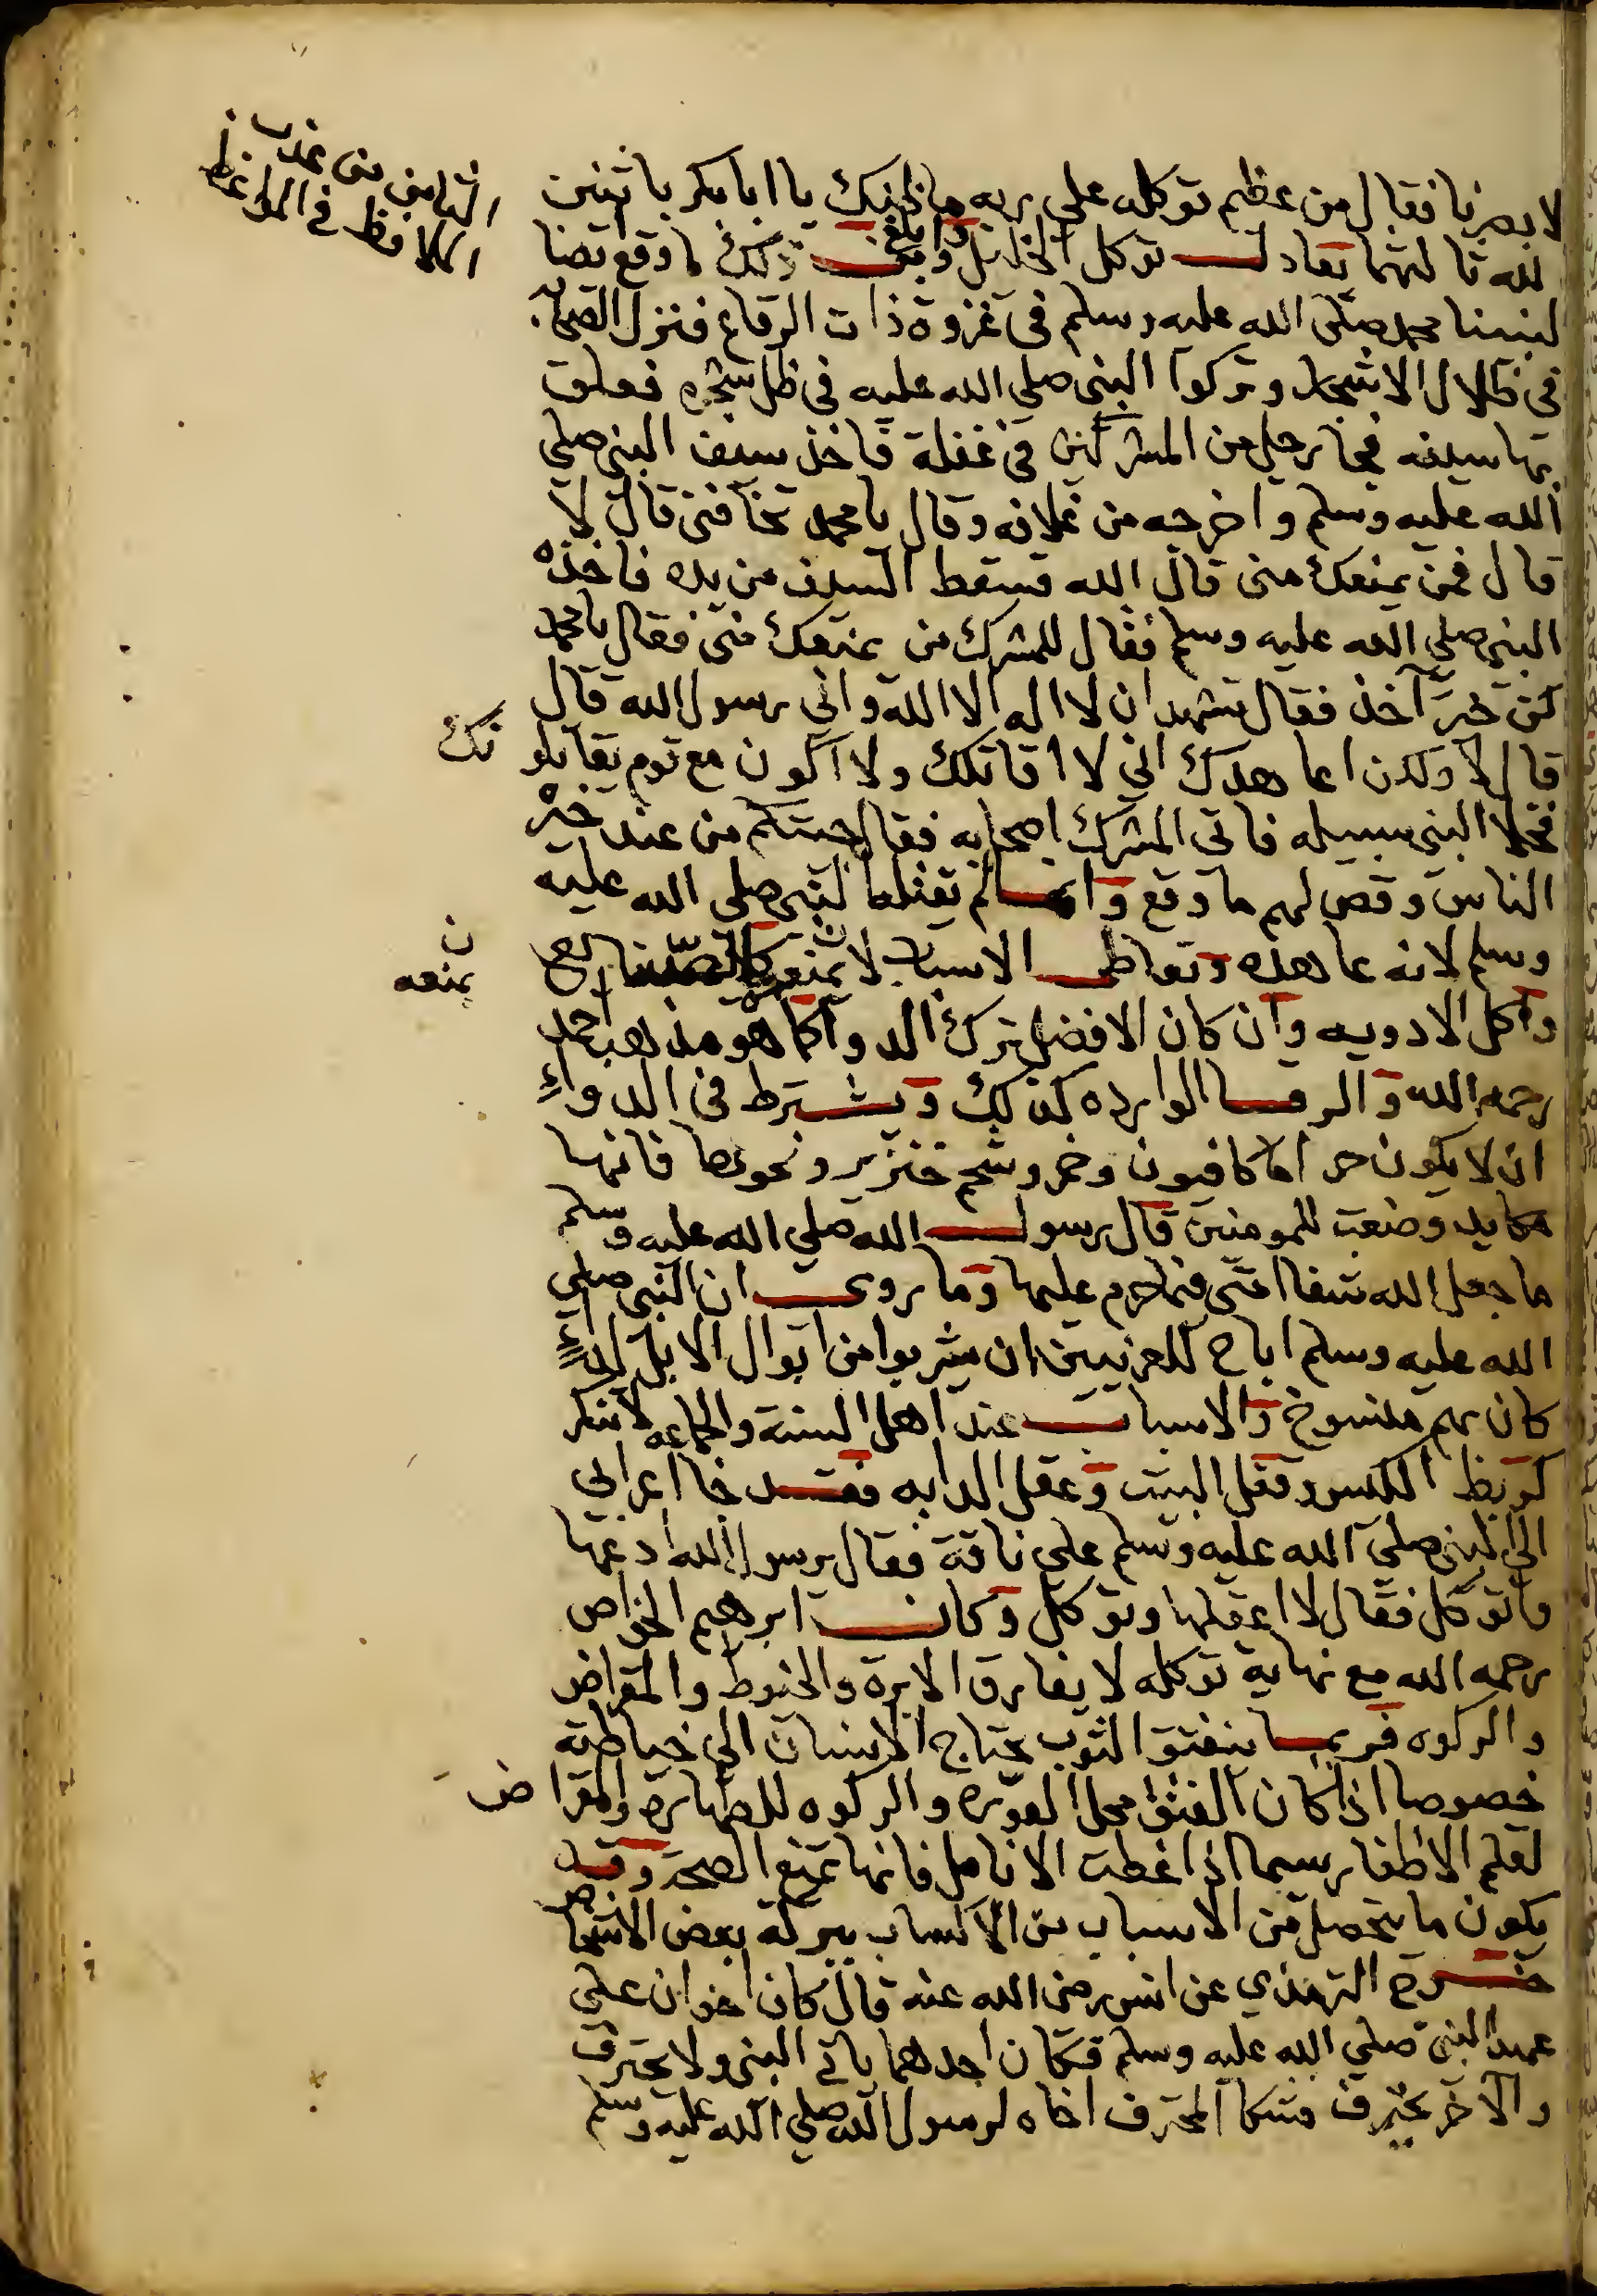 الثامن من عذب
الملافظ في المواعظ
لابصرنا فقال من عظم توكله على ربه ما ظنك يا ابا بكر باثنين
الله ثالثهما يعادل توكل الخليل وابلغ من ذلك ما وقع ايضا
لنبينا محمد صلى الله عليه وسلم في غزوة ذات الرقاع فنزل الصحابه
في ظلال الاشجار وتركوا النبي صلى الله عليه في ظل شجره فعلق
بها سيفه فجا رجل من المشركين في غفلة فاخذ سيف النبي صلي
الله عليه وسلم واخرجه من غلافه وقال يا محمد تخافني قال لا
قال فمن يمنعك مني قال الله فسقط السيف من يده فاخذه
النبي صلي الله عليه وسلم فقال للمشرك من يمنعك مني فقال يا محمد
كن خير آخذ فقال تشهد ان لا اله الا الله واني رسول الله قال
قال لا ولكن اعاهدك اني لا اقاتلك ولا اكون مع قوم يقاتلو نك
فخلا النبي سبيله فاتي المشرك اصحابه فقال جيتكم من عند خير
الناس وقص لهم ما وقع وانما لم يقتله النبي صلي الله عليه
وسلم لانه عاهده وتعاطي الاسباب لا يمنع
ن
يمنعه
واكل الادويه وان كان الافضل ترك الدوا كما هو مذهب احمد
رحمه الله والرقا الوارده كذلك ويشترط في الدواء
ان لا يكون حراما كافيون وخمر وشحم خنزير ونحوها فانها
مكايد وضعت للمومنين قال رسول الله صلي الله عليه وسلم
ما جعل الله شفا امتي فيما حرم عليها وما روي ان النبي صلي
الله عليه وسلم اباح للعرنيين ان يشربوا من ابوال الابل لداءٍ
كان بهم منسوخ والاسباب عند اهل السنة والجماعه لا تنكر
كربط الكيس وقفل البيت وعقل الدابه فقد جا اعرابي
الي النبي صلي الله عليه وسلم علي ناقة فقال يرسول الله ادعها
واتوكل فقال لا اعقلها وتوكل وكان ابرهيم الخواص
رحمه الله مع نهاية توكله لا يفارق الابرة والخيوط والمقراض
والركوه فربما ينفتق الثوب يحتاج الانسان الي خياطته
خصوصا اذا كان الفتق محل العوره والركوه للطهارة والمقرا ض
لقلم الاظفار سيما اذا غطت الانامل فانها تمنع الصحة وقد
يكون ما يتحصل من الاسباب من الاكتساب ببركة بعض الاشخاص
خرج الترمذي عن انس رضي الله عنه قال كان اخوان علي
عهد النبي صلي الله عليه وسلم فكان احدهما ياتي النبي ولا يحترف
والآخر يحترف فشكا المحترف اخاه لرسول الله صلي الله عليه وسلم